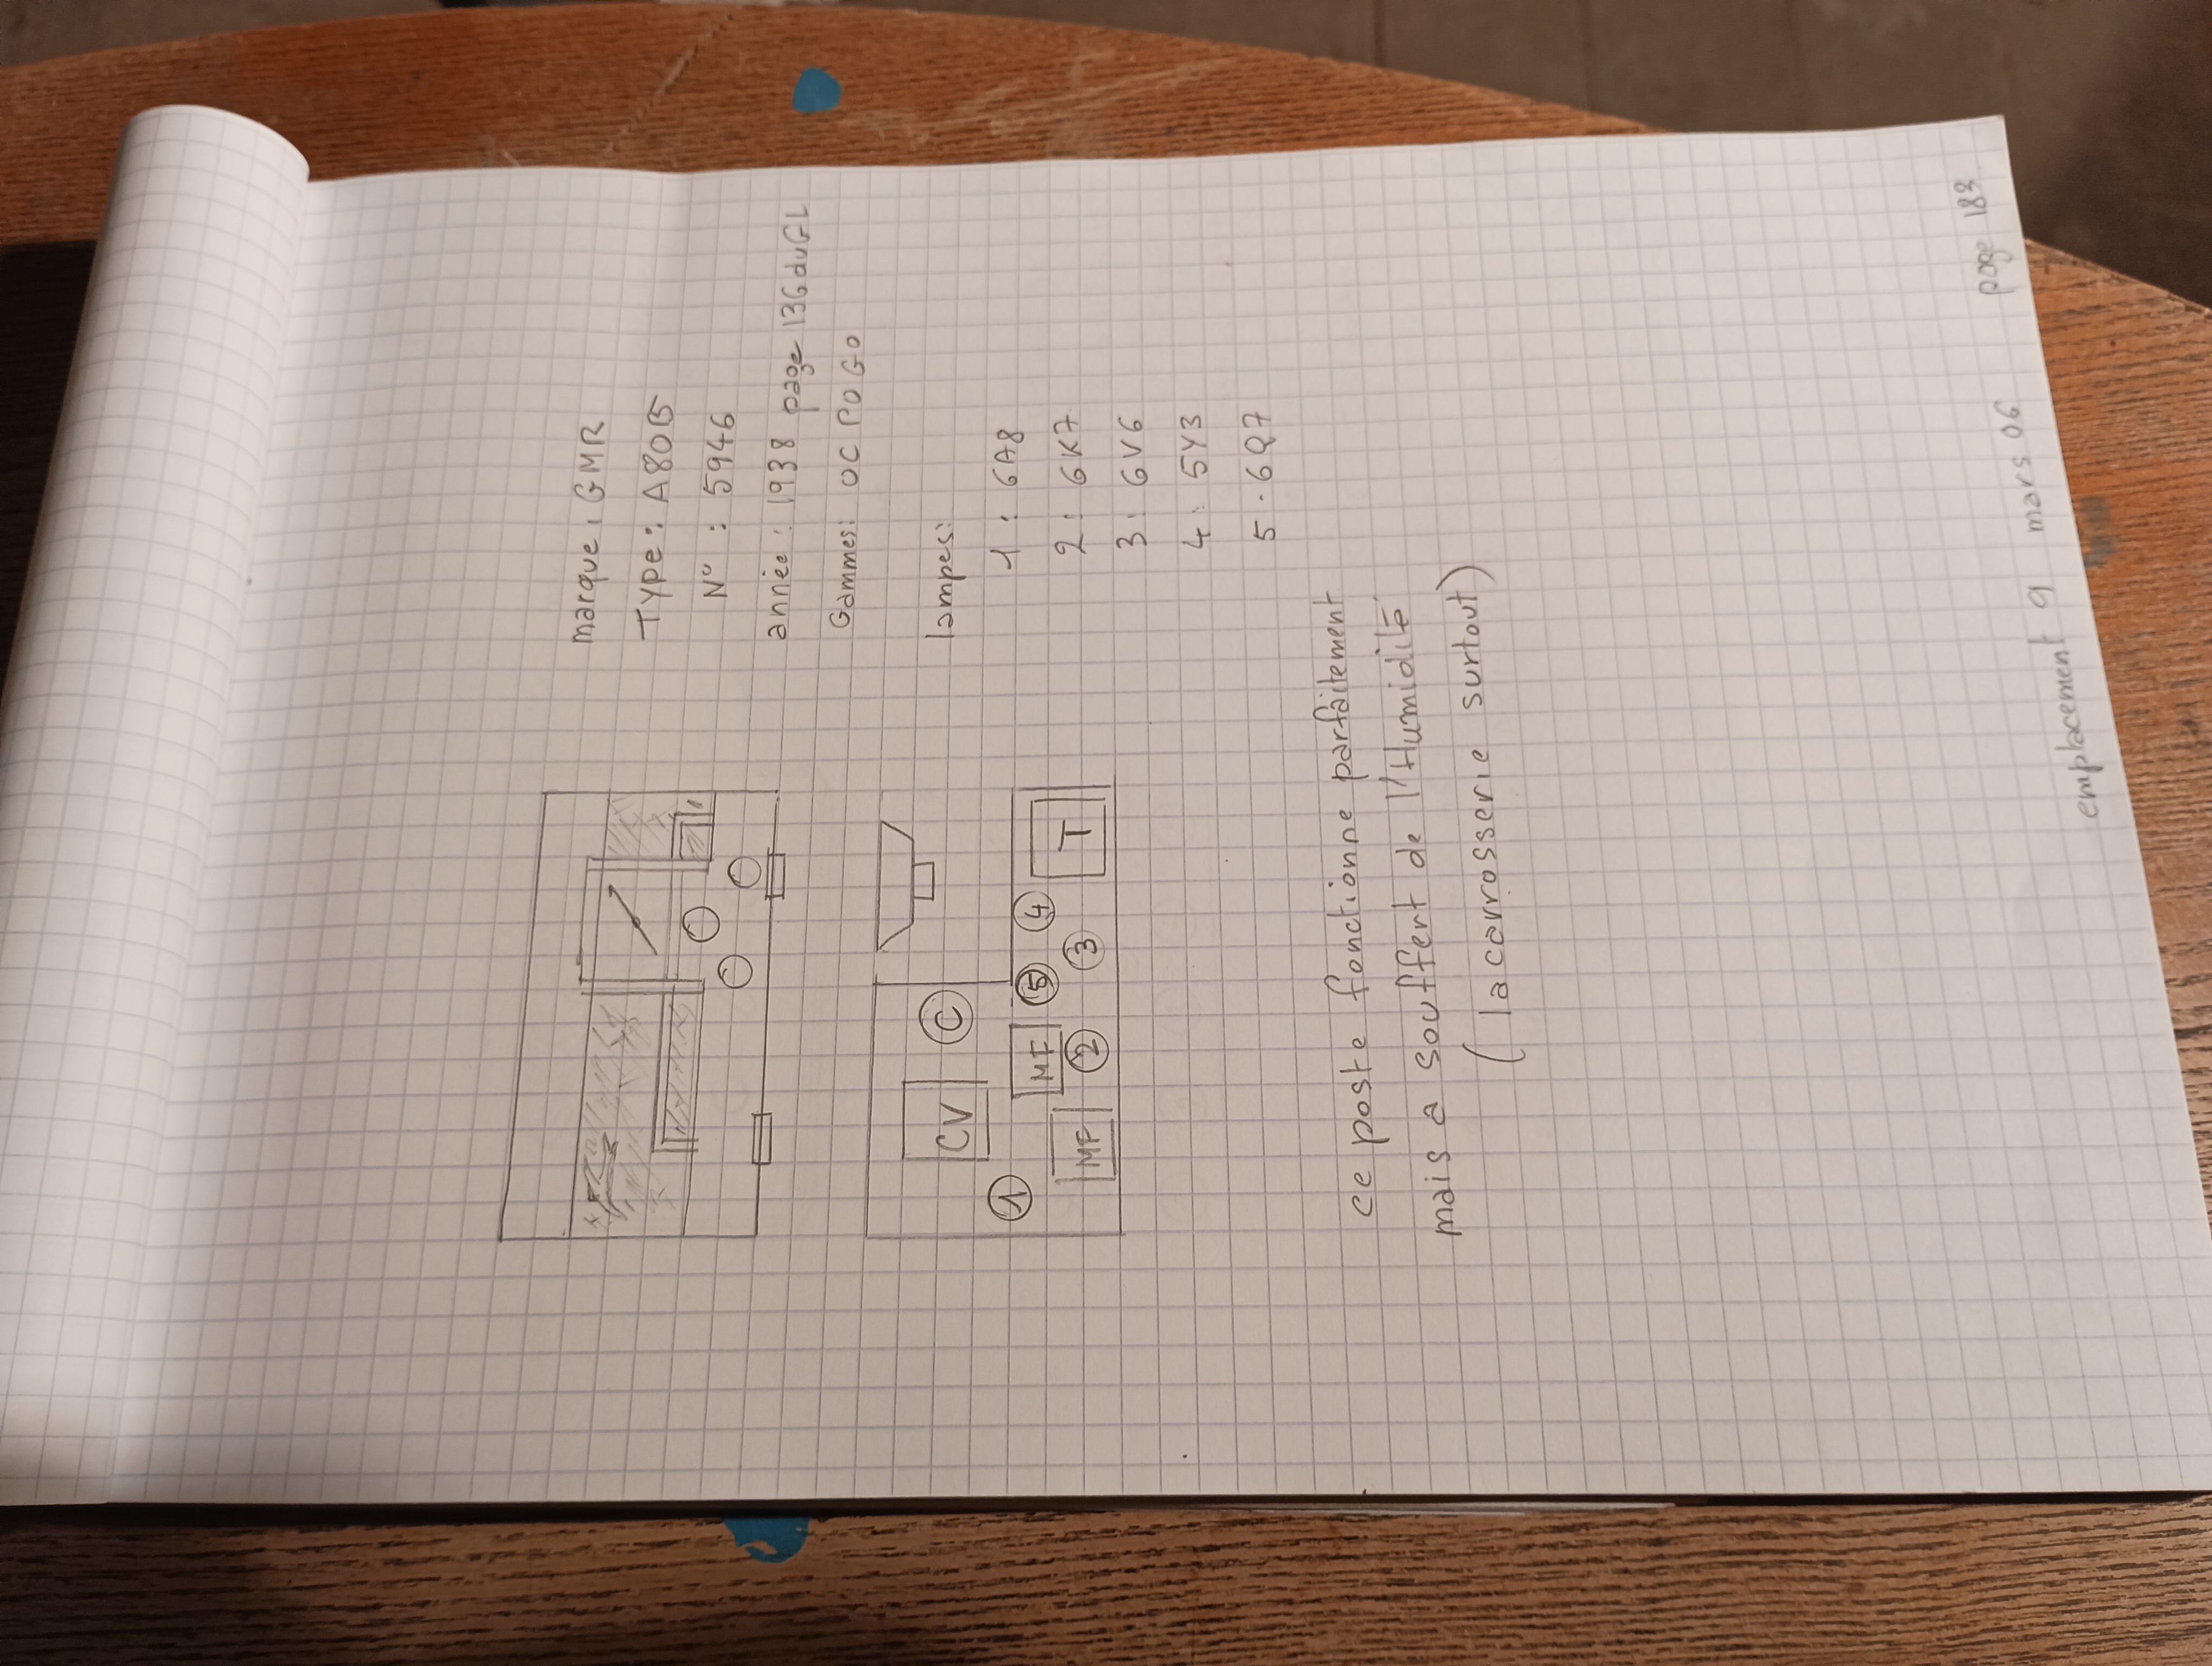 marque : GMR
Type : A80B
N° : 5946
année : 1938 page 136 du GL
Gammes : OC PO GO
CV C
1
MF 5 4
MF 2 3 T
lampes :
1 : 6A8
2 : 6K7
3 : 6V6
4 : 5Y3
5 . 6Q7
ce poste fonctionne parfaitement
mais a souffert de l'Humidité
( la carrosserie surtout )
emplacement 9 mars 06 page 183